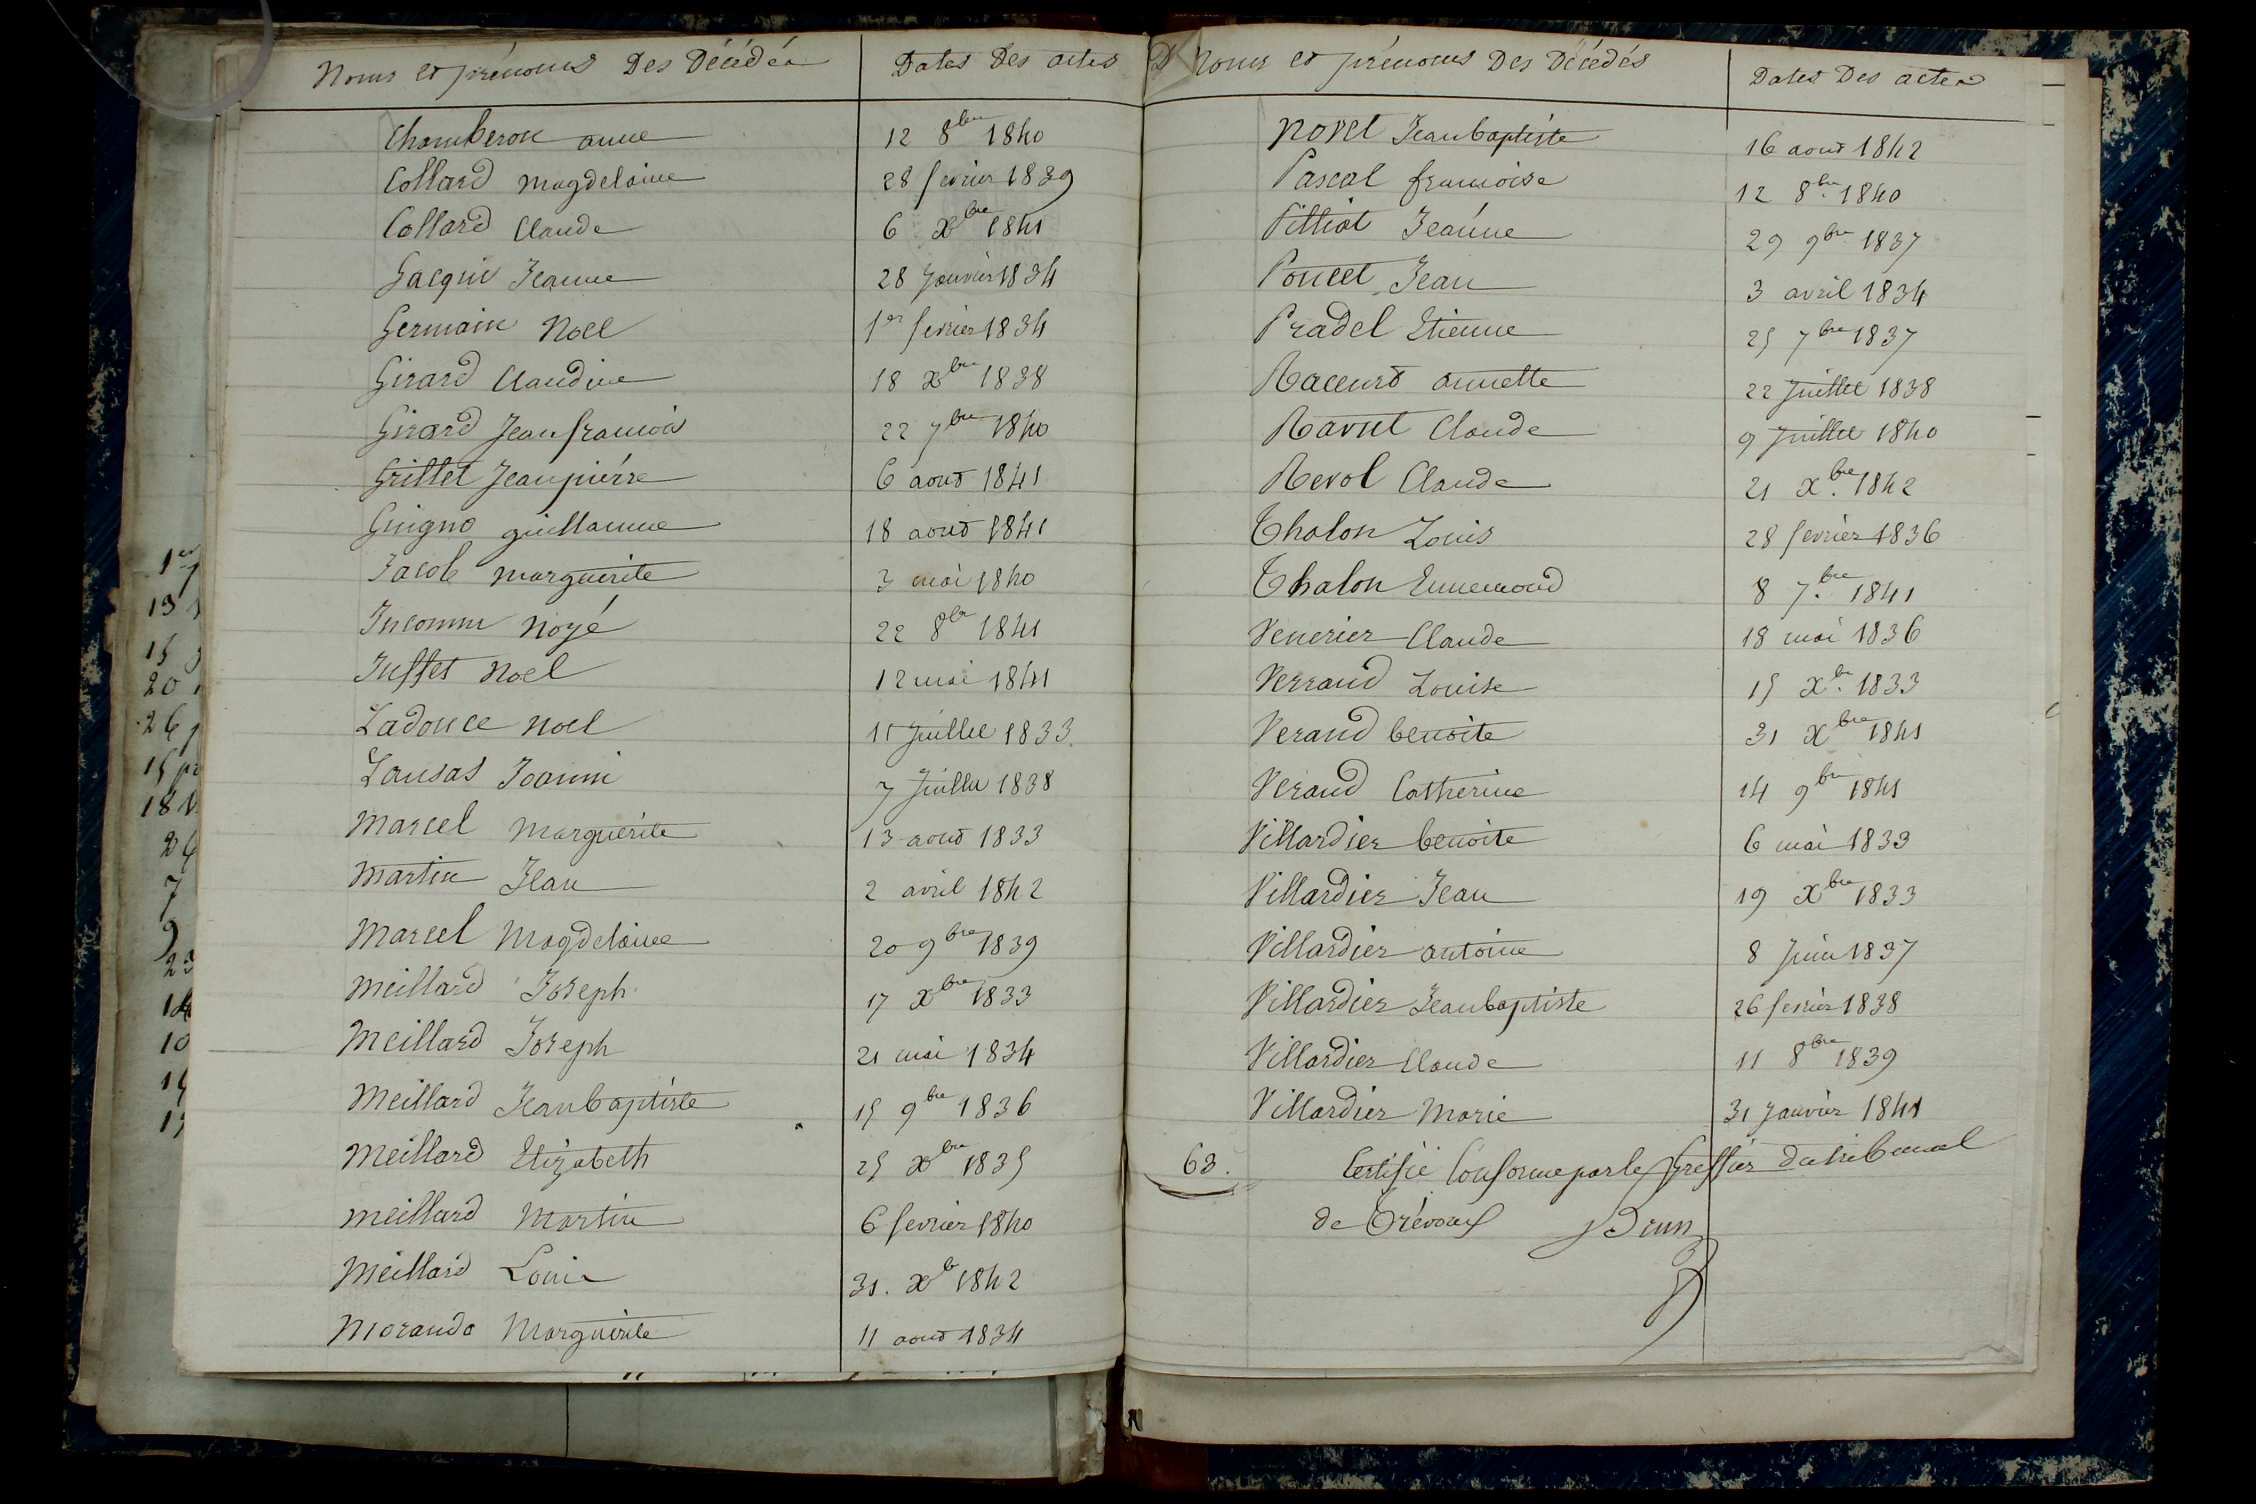 Noms et prénoms Des Décédés Dates Des actes
Chamberon anne 12 8bre 1840
Collard magdelaine 28 fevrier 1839
Collard Claude 6 Xbre 1841
Gacquin Jeanne 28 Janvier 1834
Germain Noel 1er fevrier 1834
Girard Claudine 18 Xbre 1838
Girard Jean françois 22 7bre 1840
Grillet Jean pierre 6 aout 1841
Guigno guillaume 18 aout 1841
Jacob marguerite 3 mai 1840
Inconnu Noyé 22 8br 1841
Juffet Noel 12 mai 1841
Ladouce Noel 11 Juillet 1833
Lausas Joanni 7 Juillet 1838
Marcel Marguerite 13 aout 1833
Martin Jean 2 avril 1842
Marcel Magdelaine 20 9bre 1839
Meillard Joseph 17 Xbre 1833
Meillard Joseph 21 mai 1834
Meillard Jean baptiste 15 9bre 1836
Meillard Elizabeth 25 Xbre 1835
Meillard Martin 6 fevrier 1840
Meillard Louis 31. Xb 1842
Morando Marguerite 11 aout 1834
Noms et prénoms Des Décédés Dates Des actes
Novel Jean baptiste 16 aout 1842
Pascal françoise 12 8bre 1840
Pilliat Jeanne 29 9bre 1837
Poncet Jean 3 avril 1834
Pradel Etienne 25 7bre 1837
Raccurt annette 22 Juillet 1838
Ravut Claude 9 Juillet 1840
Revol Claude 21 Xbre 1842
Thalon Louis 28 fevrier 1836
Thalon Ennemond 8 7bre 1841
Venerier Claude 18 mai 1836
Verraud Louise 15 Xbr 1833
Veraud benoite 31 Xbre 1841
Veraud Catherine 14 9bre 1841
Villardier benoite 6 mai 1833
Villardier Jean 19 Xbre 1833
Villardier antoine 8 Juin 1837
Villardier Jean baptiste 26 fevrier 1838
Villardier Claude 11 8bre 1839
Villardier Marie 31 Janvier 1841
63. Certifié Conforme par le Greffier du tribunal
de Trévoux